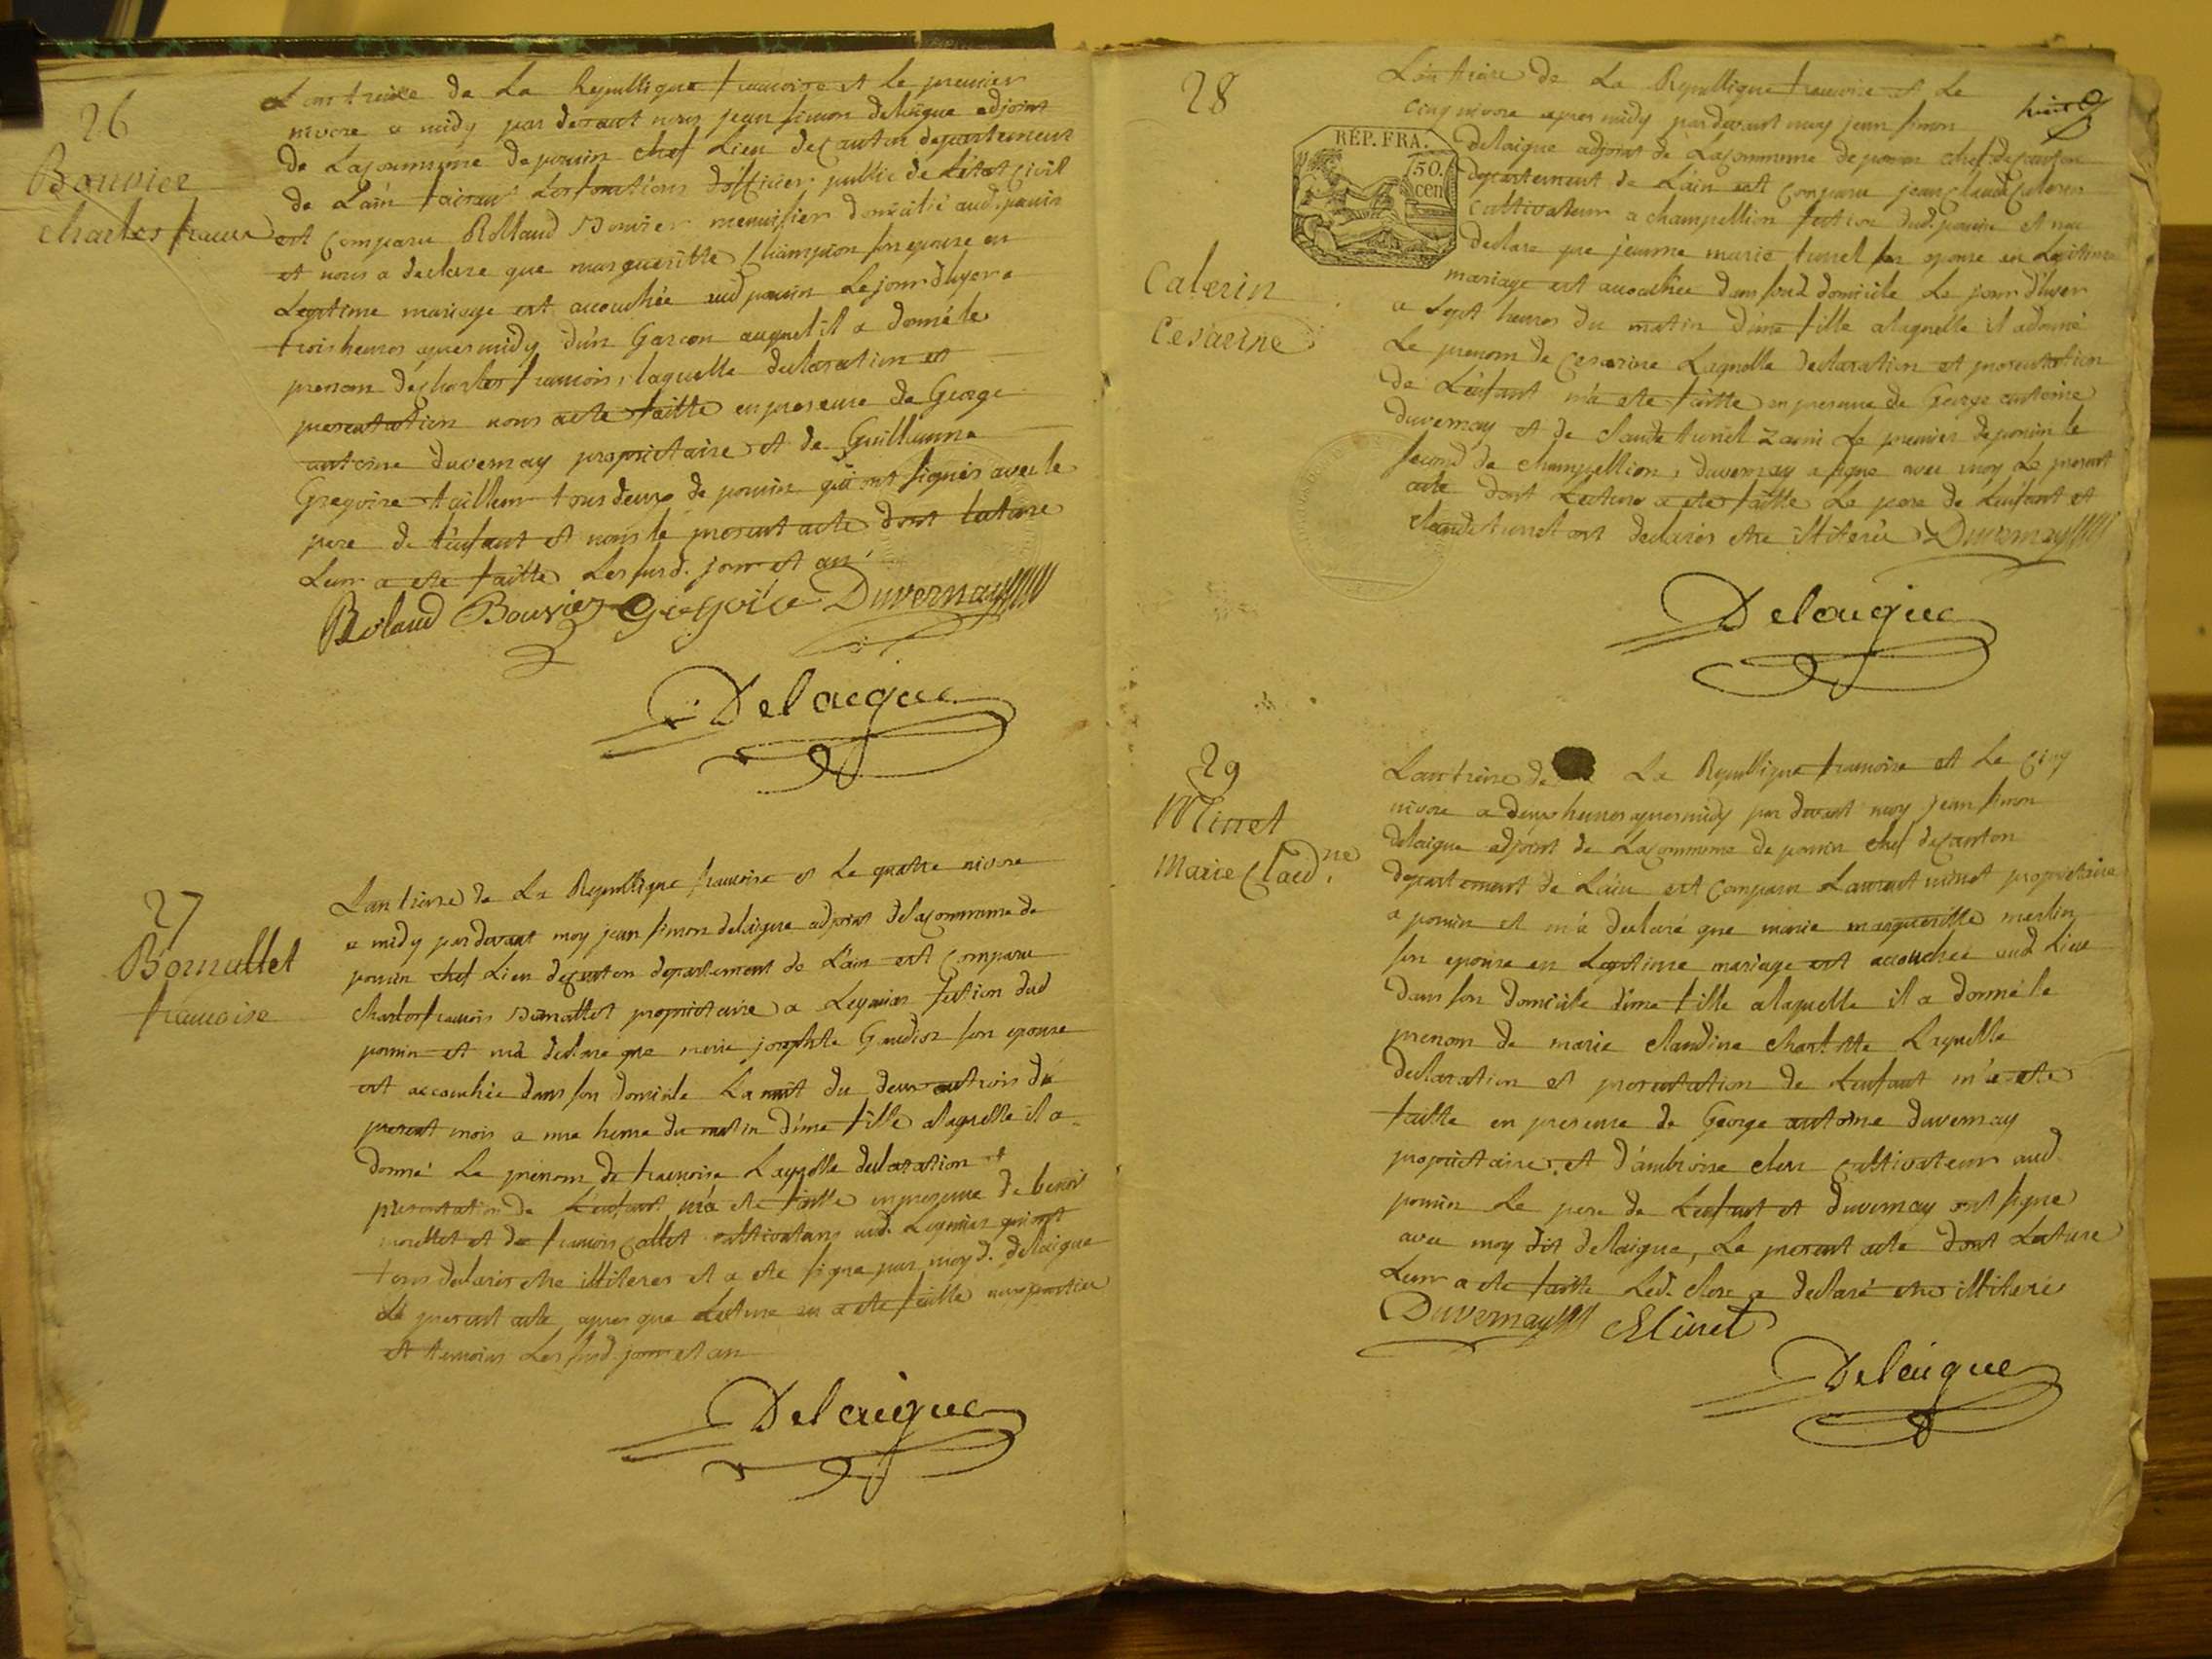 26
Bouvier
charles francois
L an treize de La Republique francoise et le premier
nivose a midy par devant nous jean simon delaigue adjoint
de La commune de poncin chef Lieu de canton departement
de L'ain faisant Les fonctions d'officier public de L'état civil
est comparu Rolland Bouvier menuisier domicilié aud. poncin
et nous a declare que margueritte Champion son epouse en
Legitime mariage est accouchée aud poncin Le jour d'hyer a
trois heures apres midy d'un Garcon auquel il a donné le
prenom de charles francois, laquelle declaration et
presentation nous a ete faitte en presence de George
antoine duvernay proprietaire et de Guillaume
Gregoire tailleur tous deux de poncin qui ont signés avec le
pere de l'enfant et nous le present acte dont lecture
Leur a ete faitte Les susd. jour et an
Roland Bouvier Gregoire Duvernay
Delaigue
27
Bornallet
francoise
L an treize de La Republique francoise et Le quatre nivose
a midy par devant moy jean simon delaigue adjoint de la commune de
poncin chef Lieu de canton departement de L'ain est comparu
charles francois Bornallet proprietaire a Leymiar section dud
poncin et m'a declare que marie josephte Gaudior son epouse
est accouchée dans son domicile La nuit du deux au trois du
present mois a une heure du matin d'une fille a laquelle il a
donné Le prenom de francoise Laquelle declaration et
presentation de L'enfant m'a ete faitte en presence de benoi
morellet et de francois collet cultivateurs aud. Leymiar qui ont
tous declarés etre illiteres et a ete signe par moy d. delaigue
Le present acte, apres que Lecture en a ete faitte aux parties
et temoins Les susd. jour et an
Delaigue
28
Calerin
Cesarine
REP. FRA.
50.
cen
L'an treize de La Republique francoise et Le
cinq nivose apres midy par devant moy jean simon
delaigue adjoint de La commune de poncin chef de canton
departement de L'ain est comparu jean claude Calerin
cultivateur a champellion section dud. poncin et m'a
declare que jeanne marie turrel son epouse en Legitime
mariage est accouchée dans sond domicile Le jour d'hyer
a sept heures du matin d'une fille a laquelle il a donné
Le prenom de cesarine Laquelle declaration et presentation
de L'enfant m'a ete faitte en presence de George antoine
duvernay et de claude turrel Le premier de poncin le
second de champellion, duvernay a signe avec moy Le present
acte dont Lecture a ete faitte Le pere de L'enfant et
claude turrel ont declarés etre illiterés Duvernay
Delaigue
29
Minet
Marie Claud.ne
L an treize de La Republique francoise et Le cinq
nivose a deux heures apres midy par devant moy jean simon
delaigue adjoint de La commune de poncin chef de canton
departement de L'ain est comparu Laurent minet proprietaire
a poncin et m'a declaré que marie margueritte merlin
son epouse en Legitime mariage est accouchée aud Lieu
dans son domicile d'une fille a laquelle il a donné le
prenom de marie claudine charlotte Laquelle
declaration et presentation de L'enfant m'a ete
faitte en presence de George antoine duvernay
proprietaire, et d'ambroise clerc cultivateur aud.
poncin Le pere de L'enfant et duvernay ont signe
avec moy dit delaigue, Le present acte dont Lecture
Leur a ete faitte Led. clerc a declaré etre illiteré
Duvernay Minet
Delaigue